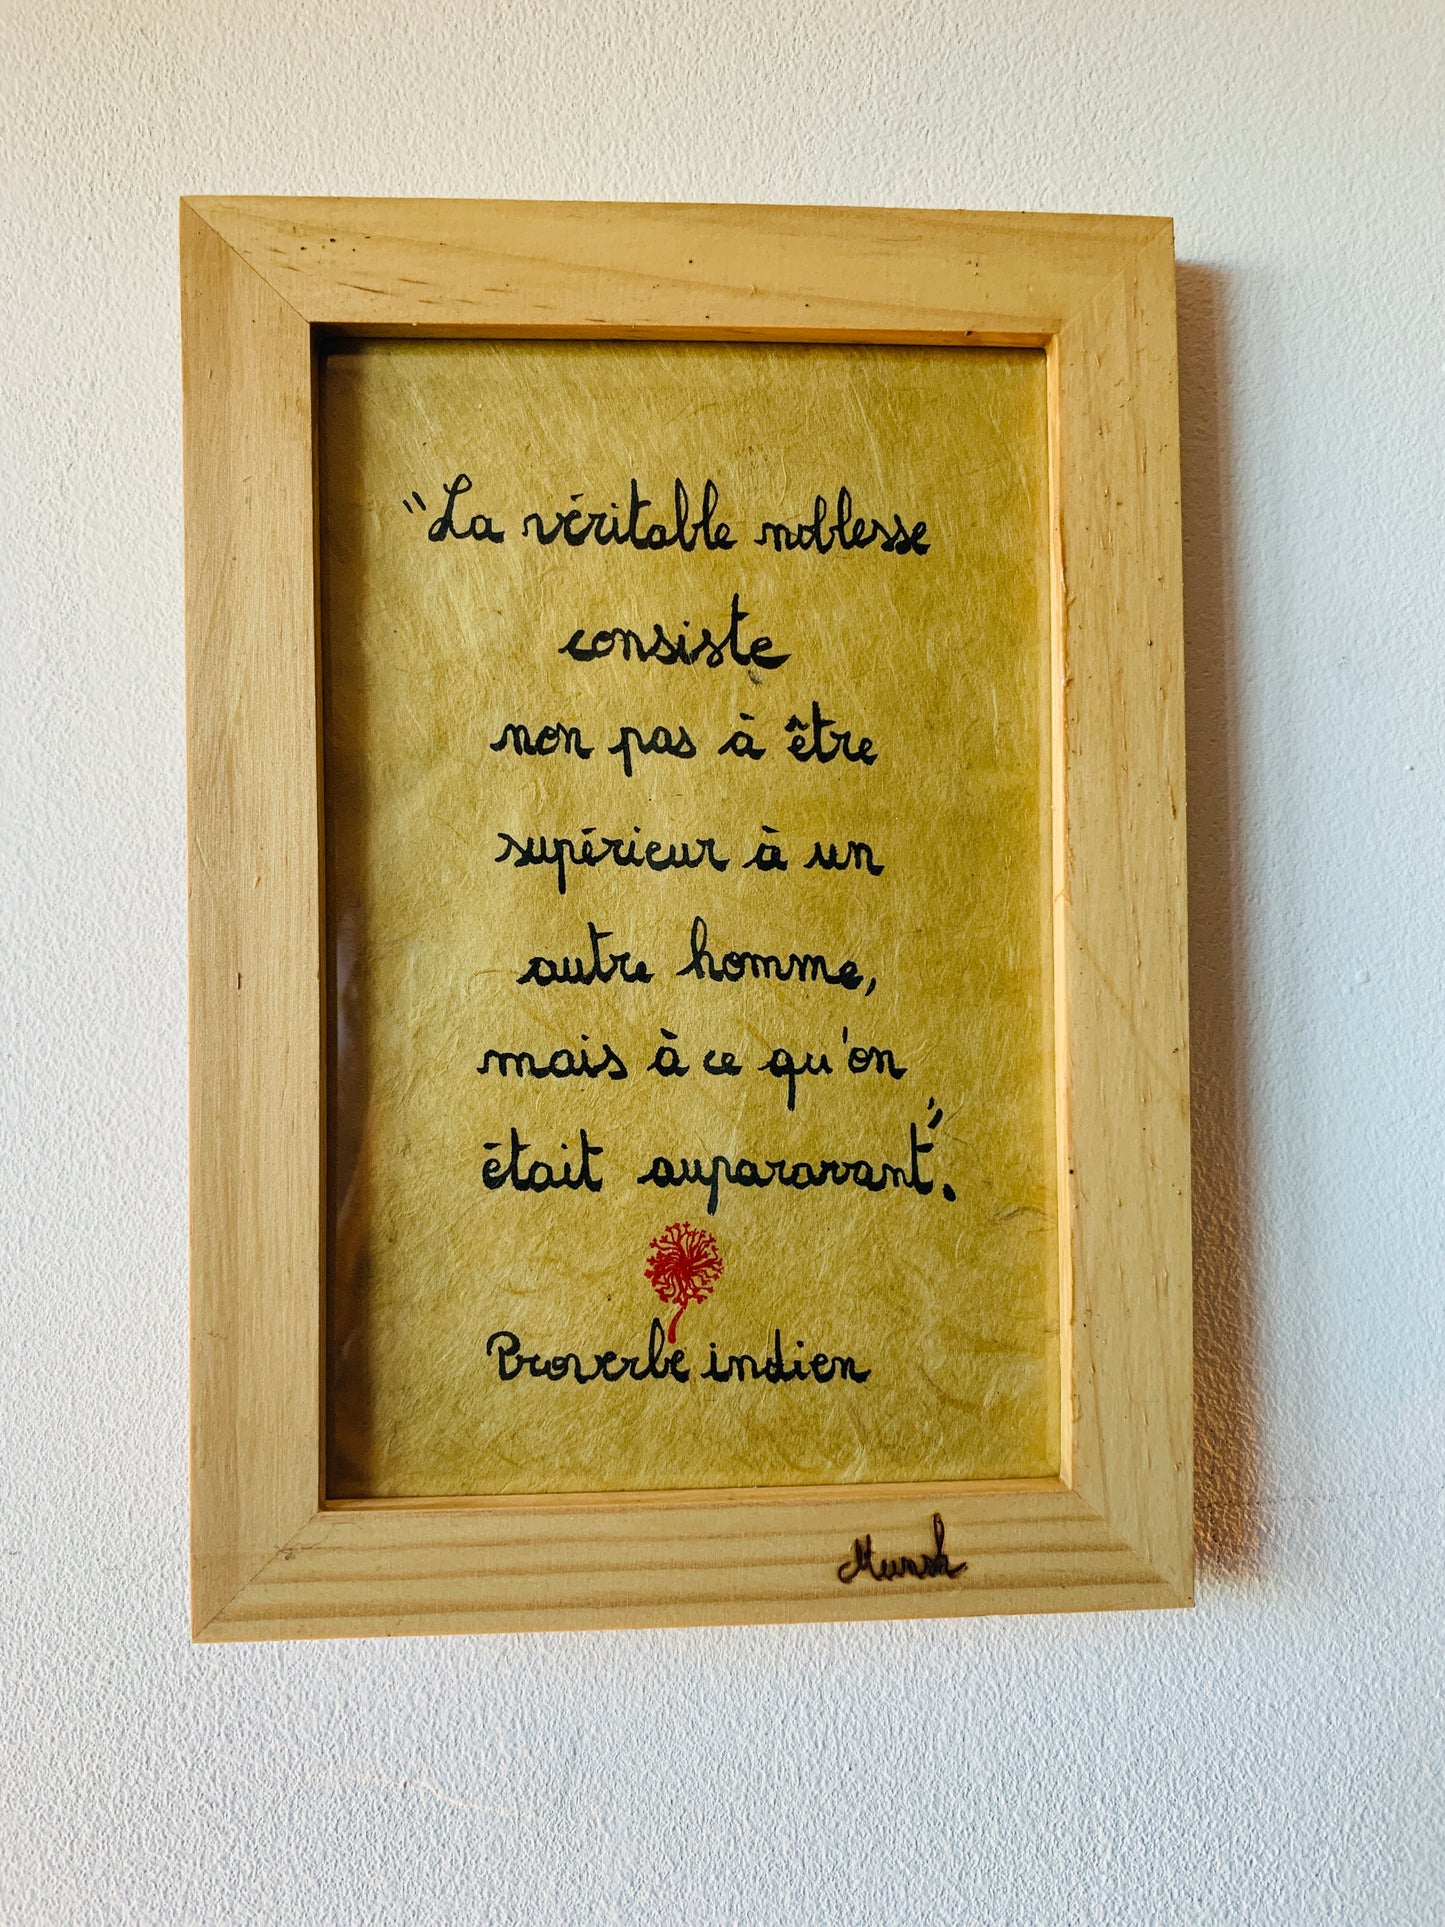 "La véritable noblesse
consiste
non pas à être
supérieur à un
autre homme,
mais à ce qu'on
était auparavant."
Proverbe indien